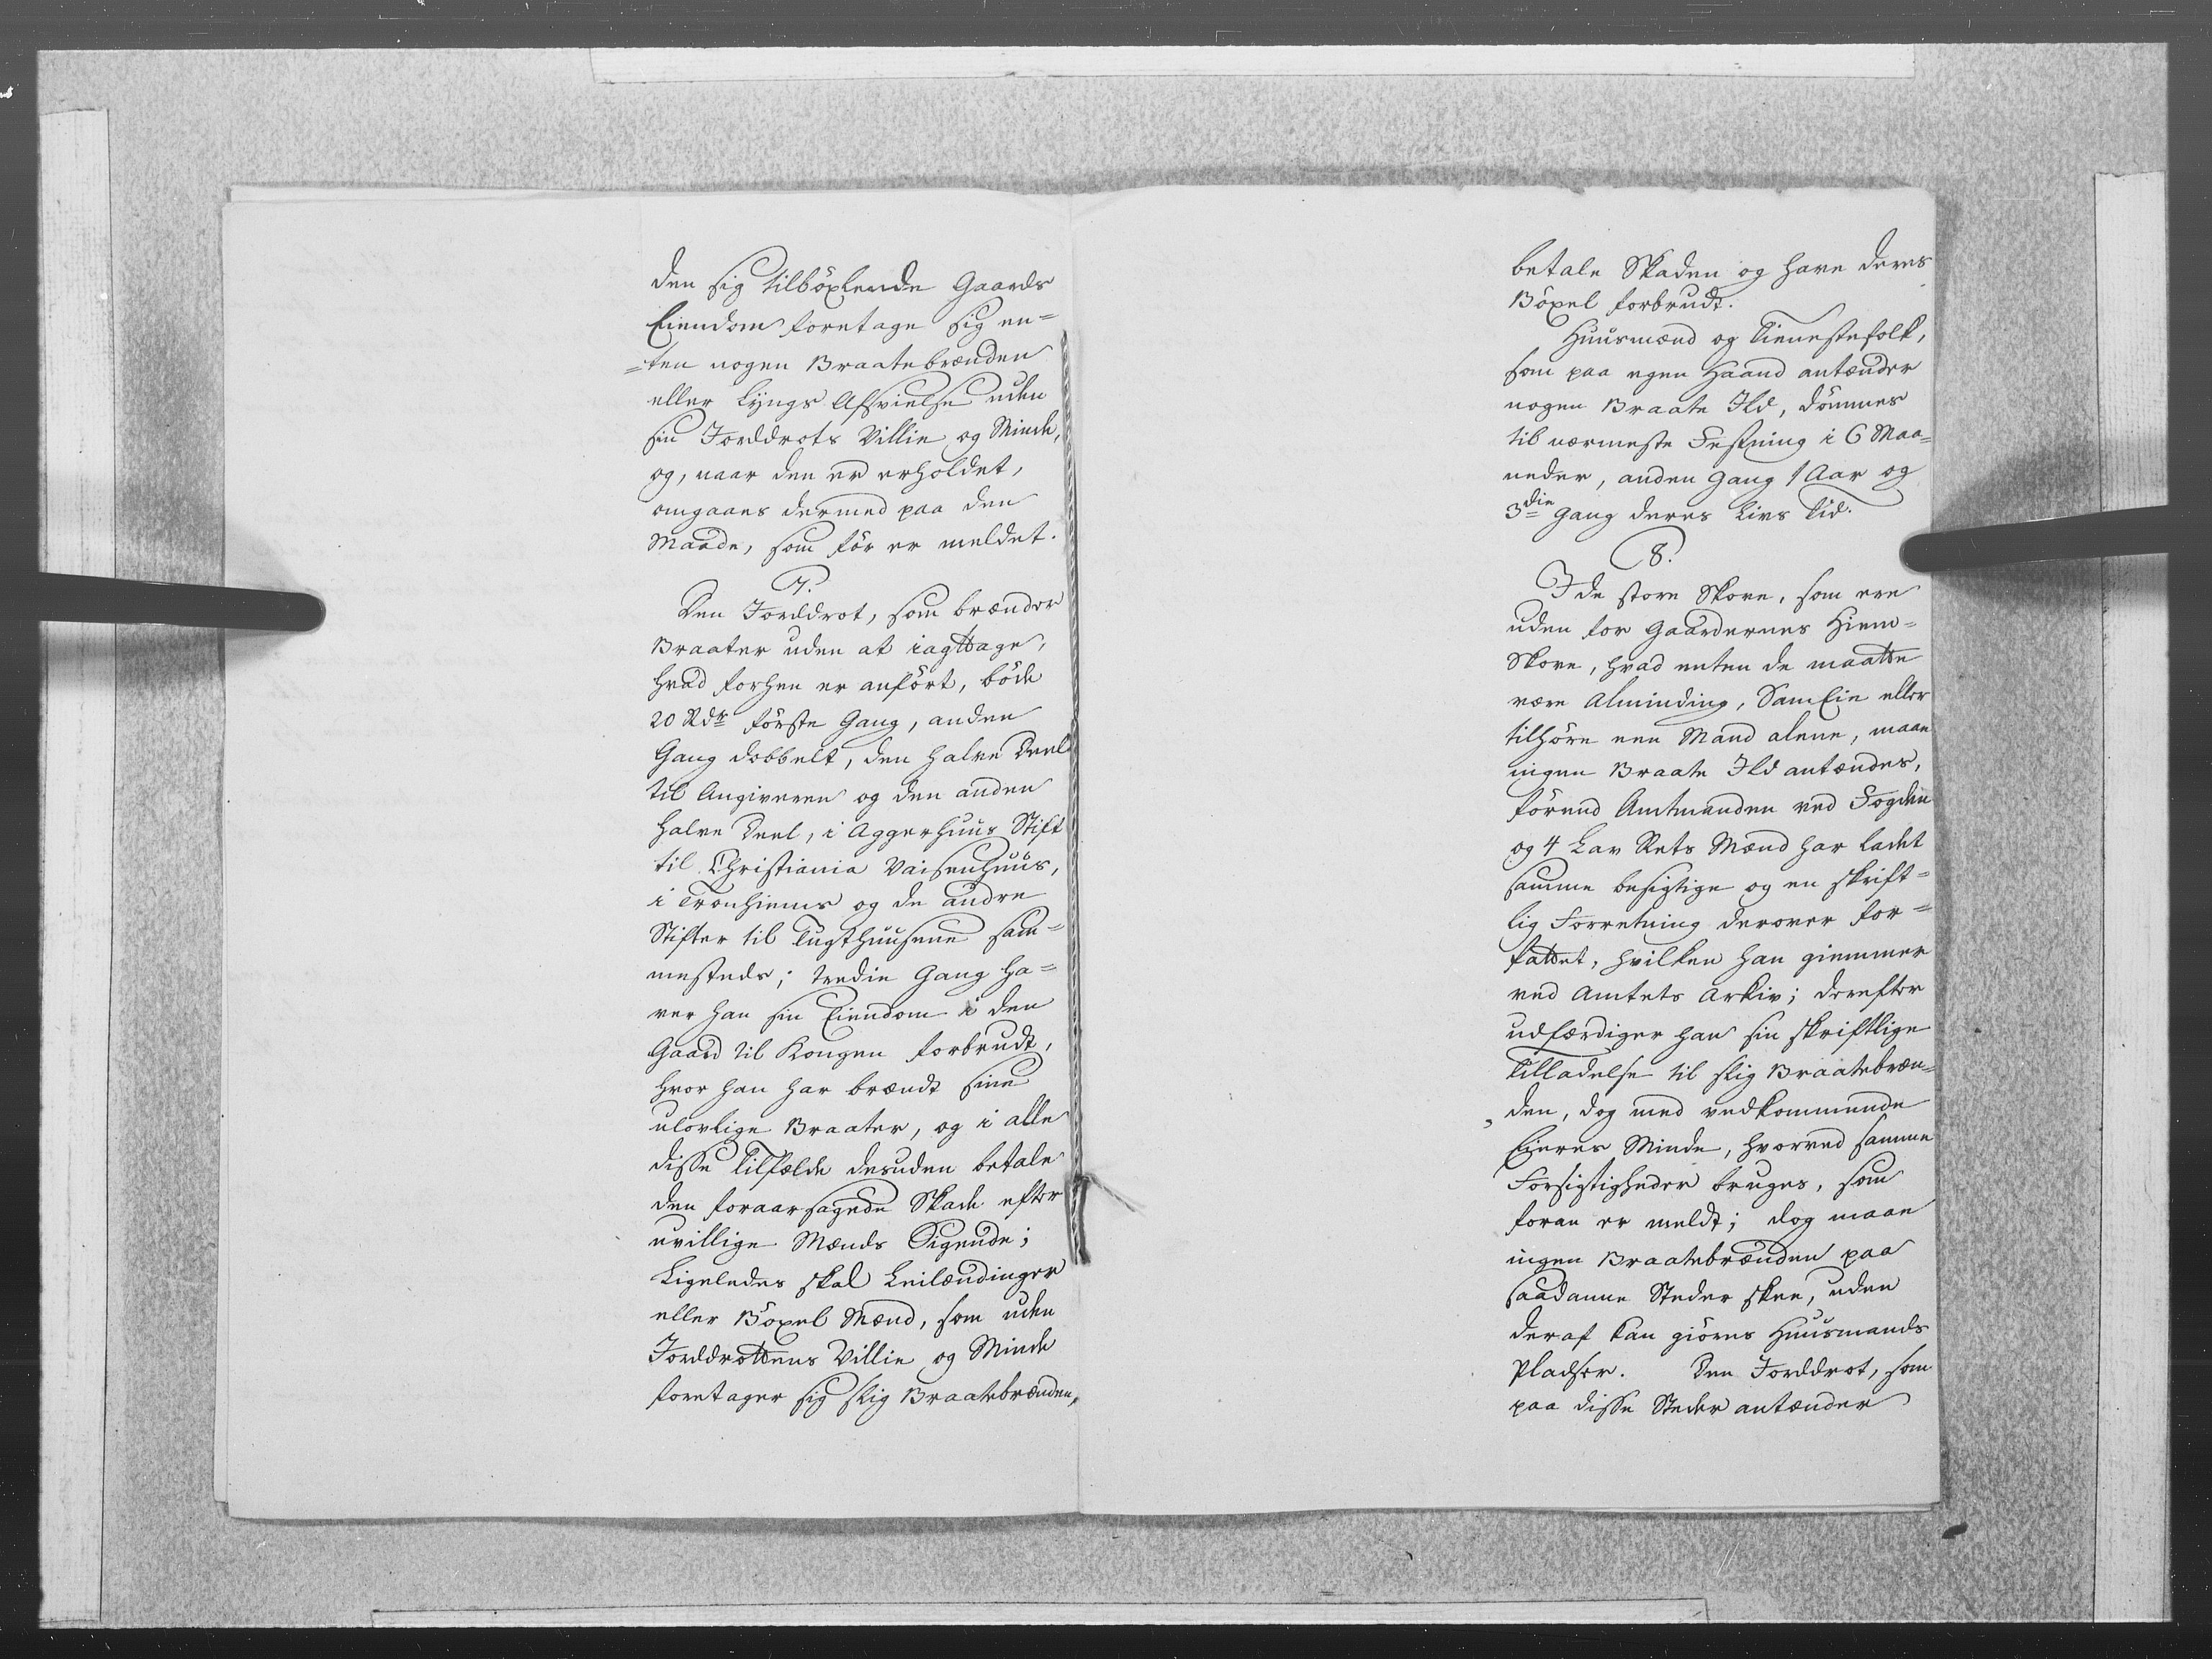 den sig tilböxlende Gaards
Eiendom foretage sig en=
=ten nogen Braatebrænden
eller Lyngs Afsvielse uden
sin Jorddrots Villie og Minde,
og, naar den er erholdet,
omgaaes dermed paa den
Maade, som för er meldet.
7.
Den Jorddrot, som brænder
Braater uden at iagttage,
hvad forhen er anfört, böde
20 Rdr förste Gang, anden
Gang dobbelt, den halve Deel
til Angiveren og den anden
halve Deel, i Aggerhuus Stift
til Christiania Vaisenhuus,
i Tronhiems og de andre
Stifter til Tugthuusene sam=
mesteds; tredie Gang ha=
ver han sin Eiendom i den
Gaard til Kongen forbrudt,
hvor han har brændt sine
ulovlige Braater, og i alle
disse Tilfælde desuden betale
den foraarsagede Skade efter
uvillige Mænds Sigende;
Ligeledes skal Leilændinger
eller Böxel Mænd, som uden
Jorddrottens Villie og Minde
foretager sig slig Braatebrænden,
betale Skaden og have deres
Böxel forbrudt.
Huusmænd og Tienestefolk,
som paa egen Haand antænder
nogen Braate Ild, dömmes
til nærmeste Festning i 6 Maa=
neder, anden Gang 1 Aar og
3die Gang deres Livs Tid.
8.
I de store Skove, som ere
uden for Gaardernes Hiem=
Skove, hvad enten de maatte
være Alminding, SamEie eller
tilhöre een Mand alene, maae
ingen Braate Ild antændes,
förend Amtmanden ved Fogden
og 4 Lav Rets Mænd har ladet
samme besigtige og en skrift=
lig Forretning derover for=
fattet, hvilken han giemmer
ved Amtets Arkiv; derefter
udfærdiger han sin skriftlige
Tilladelse til slig Braatebræn=
den, dog med vedkommende
Eieres Minde, hvorved samme
Forsigtigheder bruges, som
foran er meldt; dog maae
ingen Braatebrænden paa
saadanne Steder skee, uden
deraf kan giöres Huusmands
Pladser. Den Jorddrot, som
paa disse Steder antænder